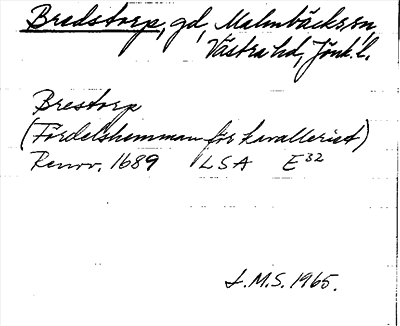 Bredstorp, gd, Malmbäcks sn,
Västra hd, Jönk. l.
Brestorp
(Fördelshemman för kavallerist)
Renov. 1689 LSA E32
L.M.S. 1965.